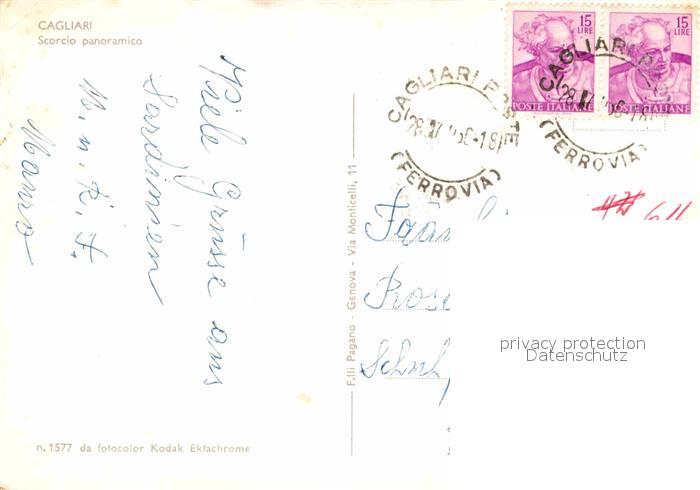 CAGLIARI
Scorcio panoramico
Viele Grüsse aus
Sardinien
M. n. K. F.
Mario
n. 1577 da fotocolor Kodak Ektachrome
F.lli Pagano - Genova - Via Monticelli, 11
15 LIRE
POSTE ITALIANE
15 LIRE
POSTE ITALIANE
CAGLIARI POSTE
(FERROVIA)
CAGLIARI POSTE
(FERROVIA)
privacy protection
Datenschutz